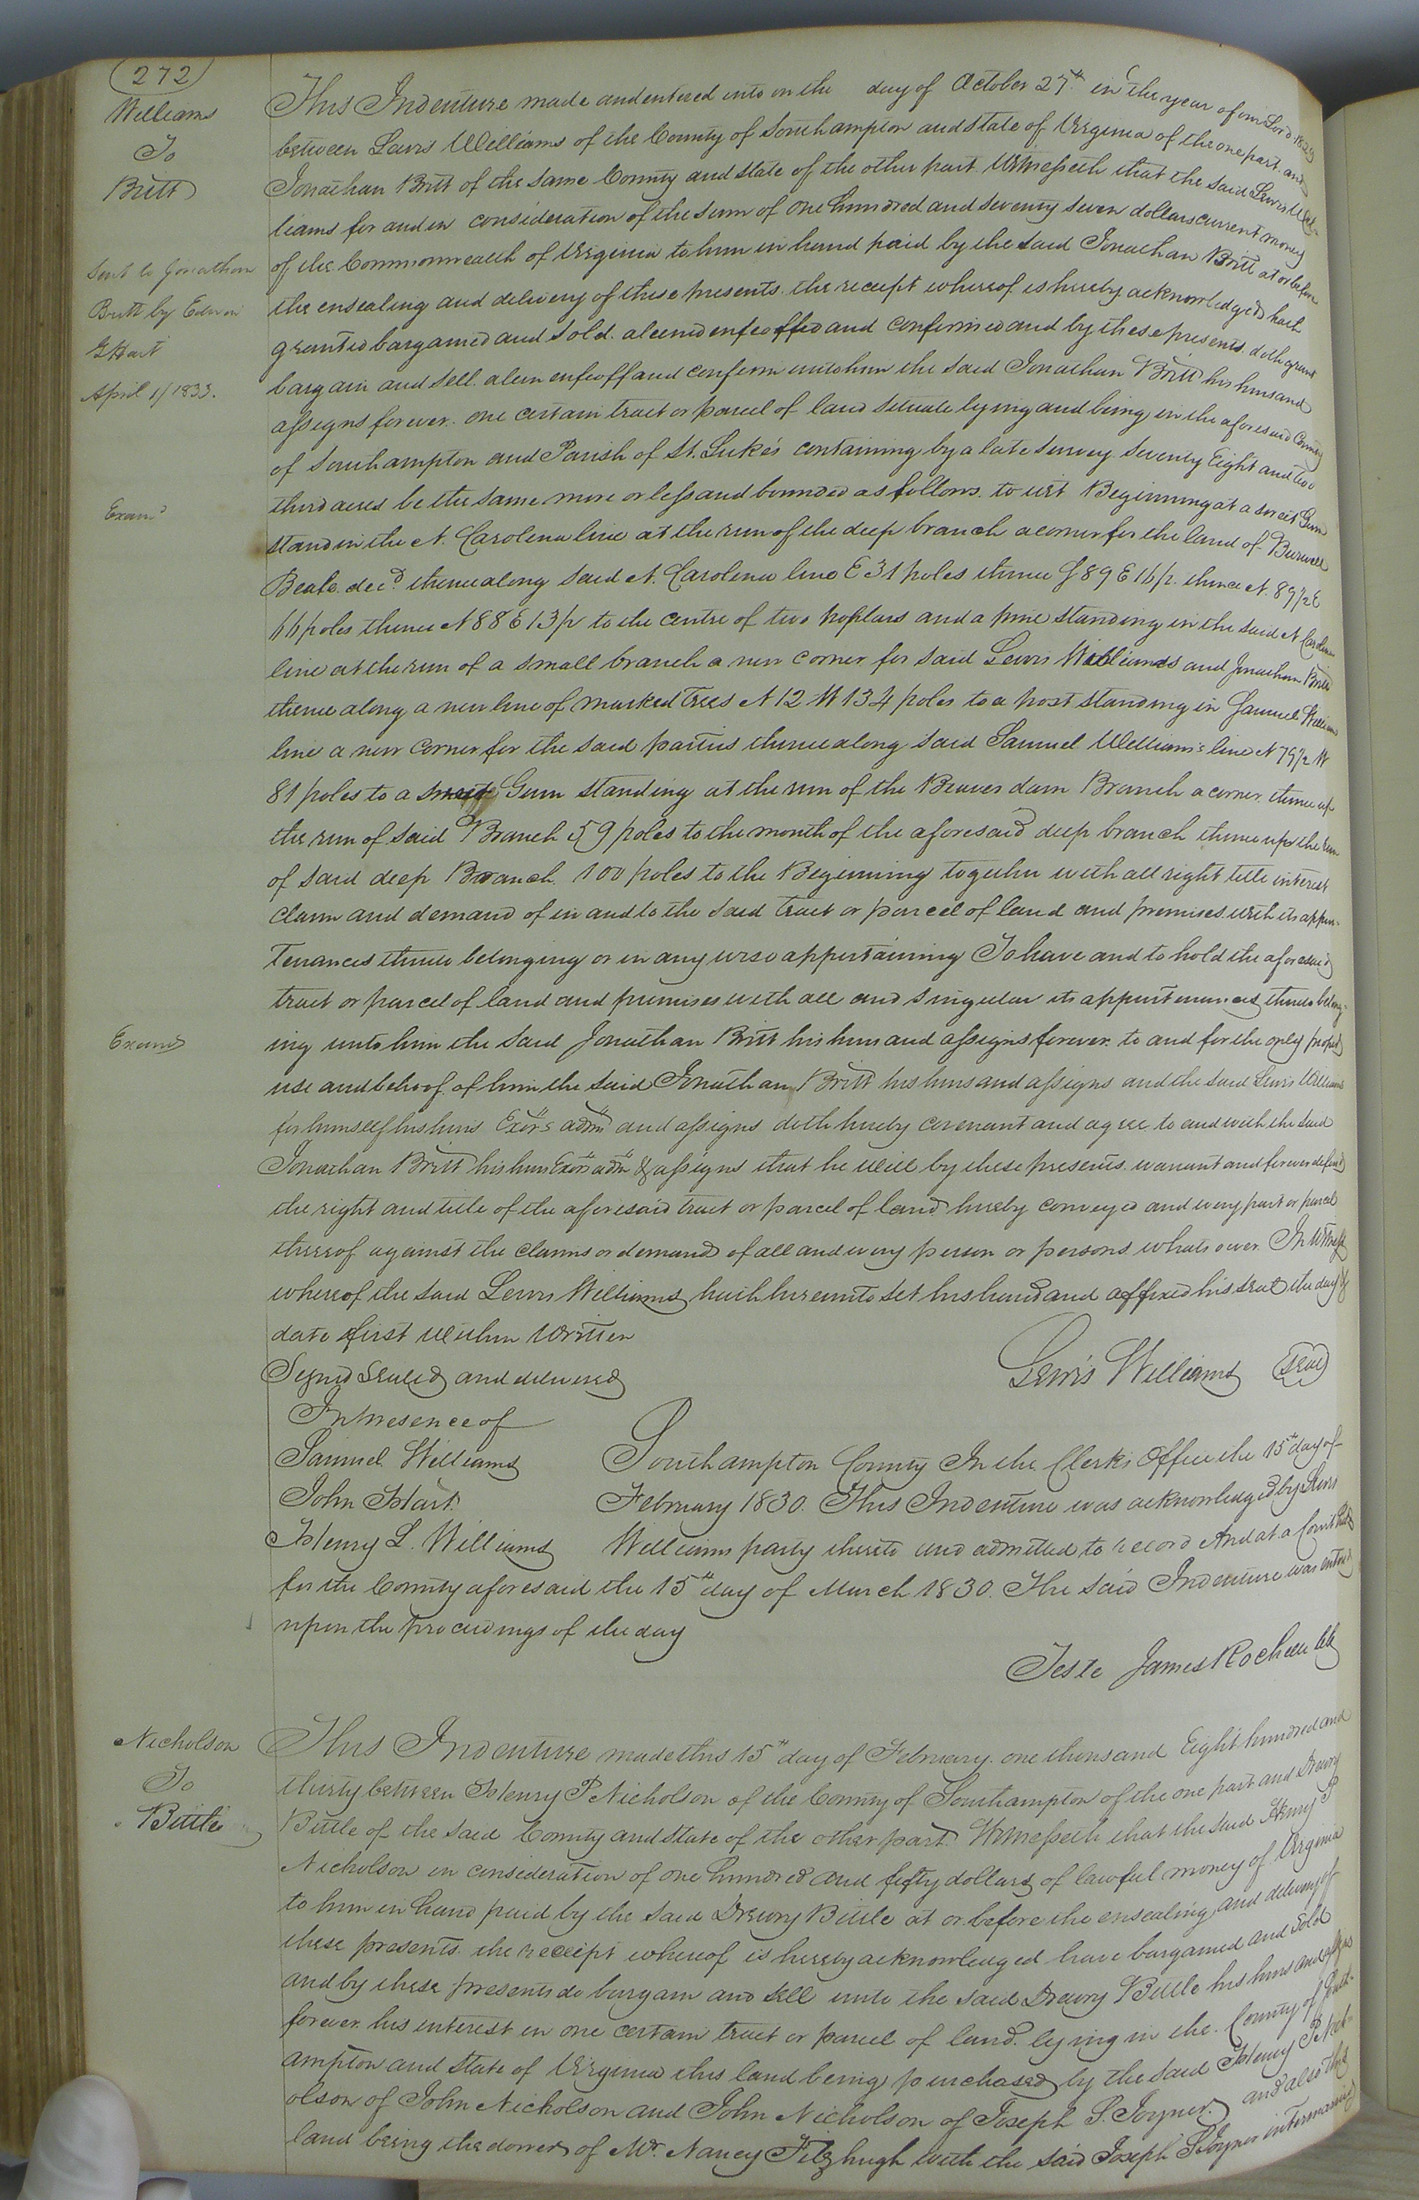 272
Williams
To
Britt
Sent to Jonathan
Britt by Edwin
G Hart
April 1/ 1833.
Exam.d
Exam.d
This Indenture made and entered into on the day of October 27th in the year of our Lord 1829
between Lewis Williams of the County of Southampton and State of Virginia of the one part and
Jonathan Britt of the same County and State of the other part Witnesseth that the said Lewis Wil-
liams for and in consideration of the sum of One hundred and seventy seven dollars current money
of the Commonwealth of Virginia to him in hand paid by the said Jonathan Britt at or before
the ensealing and delivery of these presents the receipt whereof is hereby acknowledged hath
granted bargained and sold aliened enfeoffed and confirmed and by these presents doth grant
bargain and sell alien enfeoff and confirm unto him the said Jonathan Britt his heirs and
assigns forever one certain tract or parcel of land situate lying and being in the aforesaid County
of Southampton and Parish of St. Luke's containing by a late survey Seventy Eight and two
third acres be the same more or less and bounded as follows to wit Beginning at a sweet Gum
stand in the N. Carolina line at the run of the deep branch a corner for the land of Burwell
Beale dec.d thence along said N. Carolina line E 31 poles thence S 89 E 16 p. thence N. 89 1/2 E
66 poles thence N 88 E 13 p to the centre of two poplars and a pine standing in the said N Carolina
line at the run of a small branch a new corner for said Lewis Williams and Jonathan Britt
thence along a new line of marked trees N 12 W 134 poles to a post standing in Samuel Williams
line a new corner for the said parties thence along said Samuel Williams's line N 79 1/2 W
81 poles to a sweet Gum standing at the run of the Beaver dam Branch a corner thence up
the run of said Branch 59 poles to the mouth of the aforesaid deep branch thence up the run
of said deep Branch 100 poles to the Beginning together with all right title interest
claim and demand of in and to the said tract or parcel of land and premises with its appur-
tenances thereto belonging or in any wise appertaining To have and to hold the aforesaid
tract or parcel of land and premises with all and singular its appurtenances thereto belong-
ing unto him the said Jonathan Britt his heirs and assigns forever to and for the only proper
use and behoof of him the said Jonathan Britt his heirs and assigns and the said Lewis Williams
for himself his heirs Exors admrs and assigns doth hereby covenant and agree to and with the said
Jonathan Britt his heirs Exors admrs & assigns that he will by these presents warrant and forever defend
the right and title of the aforesaid tract or parcel of land hereby conveyed and every part or parcel
thereof against the claims or demand of all and every person or persons whatsoever In witness
whereof the said Lewis Williams hath hereunto set his hand and affixed his seal the day &
date first within written
Signd Sealed and delivered
In presence of
Samuel Williams
John Hart
Henry L. Williams
Lewis Williams (Seal)
Southampton County In the Clerk's Office the 15th day of
February 1830. This Indenture was acknowledged by Lewis
Williams party thereto and admitted to record And at a Court held
for the County aforesaid the 15th day of March 1830. The said Indenture was entered
upon the proceedings of the day
Teste James Rochelle Clk
Nicholson
To
Bittle
This Indenture made this 15th day of February one thousand Eight hundred and
thirty between Henry P Nicholson of the County of Southampton of the one part and Drewry
Bittle of the said County and state of the other part Witnesseth that the said Henry P
Nicholson in consideration of one hundred and fifty dollars of lawful money of Virginia
to him in hand paid by the said Drewry Bittle at or before the ensealing and delivery of
these presents the receipt whereof is hereby acknowledged have bargained and sold
and by these presents do bargain and sell unto the said Drewry Bittle his heirs and assigns
forever his interest in one certain tract or parcel of land lying in the County of South-
ampton and State of Virginia this land being purchased by the said Henry P Nich-
olson of John Nicholson and John Nicholson of Joseph S. Joyner and also this
land being the dower of Mrs. Nancy Fitzhugh with the said Joseph S Joyner intermarried